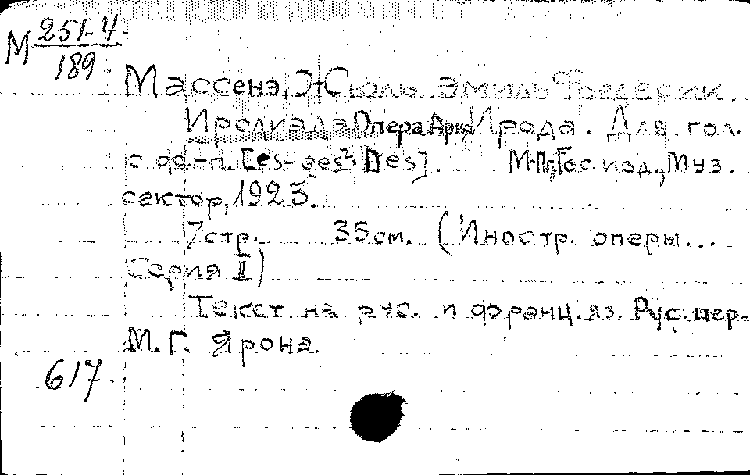 М 251-4
189
Массенэ, Жюль Эмиль Фредерик.
Иродиада Опера Ария Ирода. Для гол.
с ф-п. [es-ges²; Des]. М.-Пг., Гос. изд., Муз.
сектор, 1923.
7 стр. 35 см. (Иностр. оперы...
Серия II)
Текст на рус. и франц. яз. Рус. пер.
М. Г. Ярона.
617